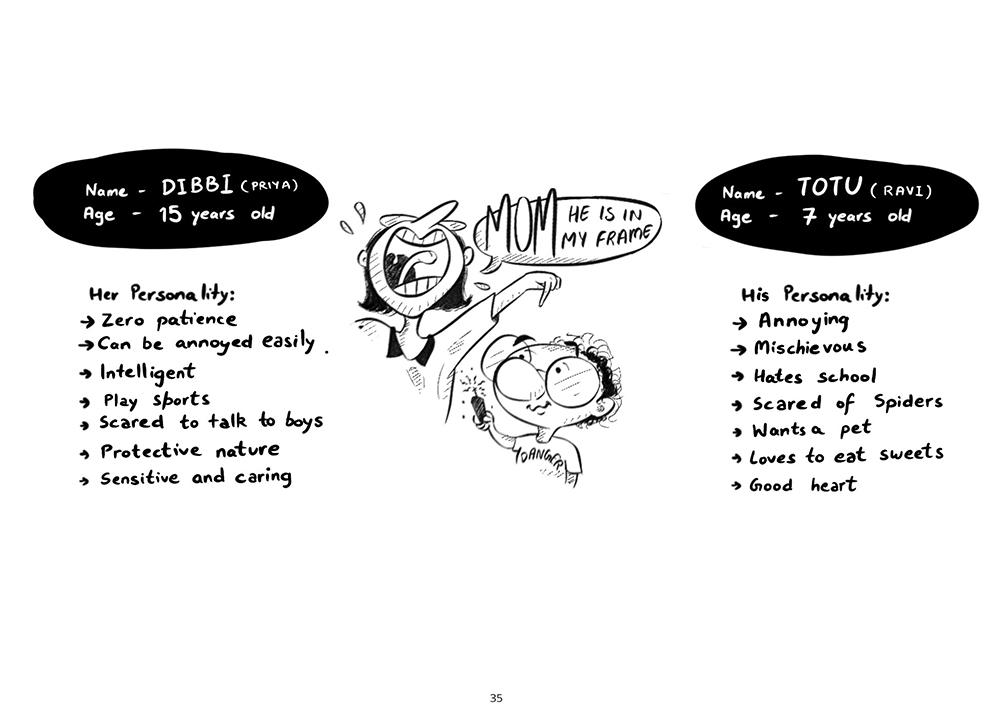 Name - DIBBI (PRIYA)
Age - 15 years old
Her Personality:
→ Zero patience
→ Can be annoyed easily .
→ Intelligent
→ Play sports
→ Scared to talk to boys
→ Protective nature
→ Sensitive and caring
MOM HE IS IN
MY FRAME
DANGER
Name - TOTU (RAVI)
Age - 7 years old
His Personality:
→ Annoying
→ Mischievous
→ Hates school
→ Scared of Spiders
→ Wants a pet
→ Loves to eat sweets
→ Good heart
35